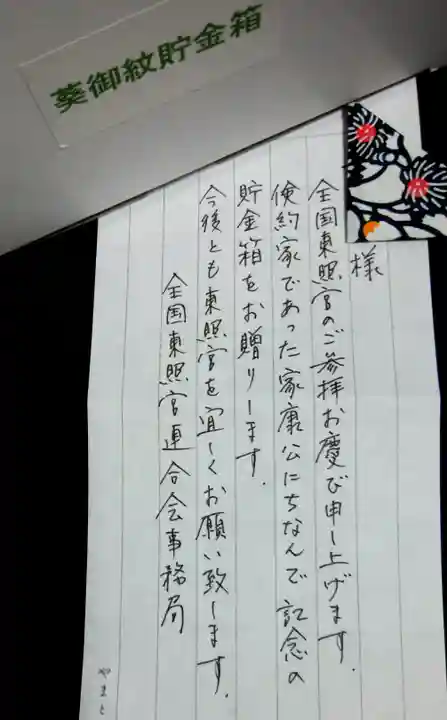 葵御紋貯金箱
様
全国東照宮のご参拝お慶び申し上げます.
倹約家であった家康公にちなんで記念の
貯金箱をお贈りします.
今後とも東照宮を宜しくお願い致します.
全国東照宮連合会事務局
やまと